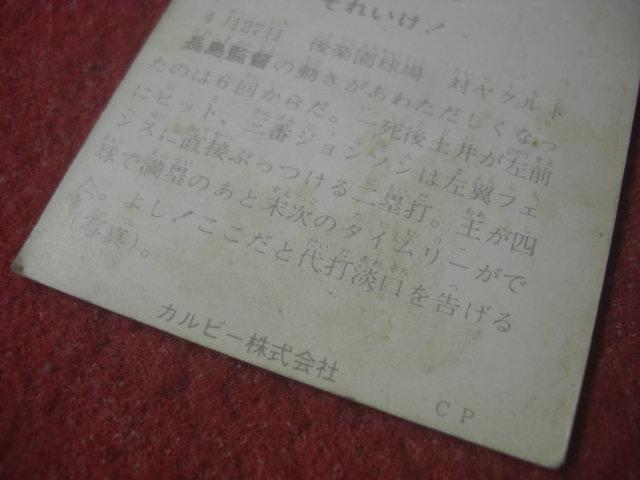 それいけ！
4月27日　後楽園球場　対ヤクルト
長島監督の動きがあわただしくなっ
たのは6回からだ。一死後土井が左前
にヒット、三番ジョンソンは左翼フェ
ンスに直接ぶっつける二塁打。王が四
球で満塁のあと末次のタイムリーがで
た。よし！ここだと代打淡口を告げる
(写真)。
カルビー株式会社
CP